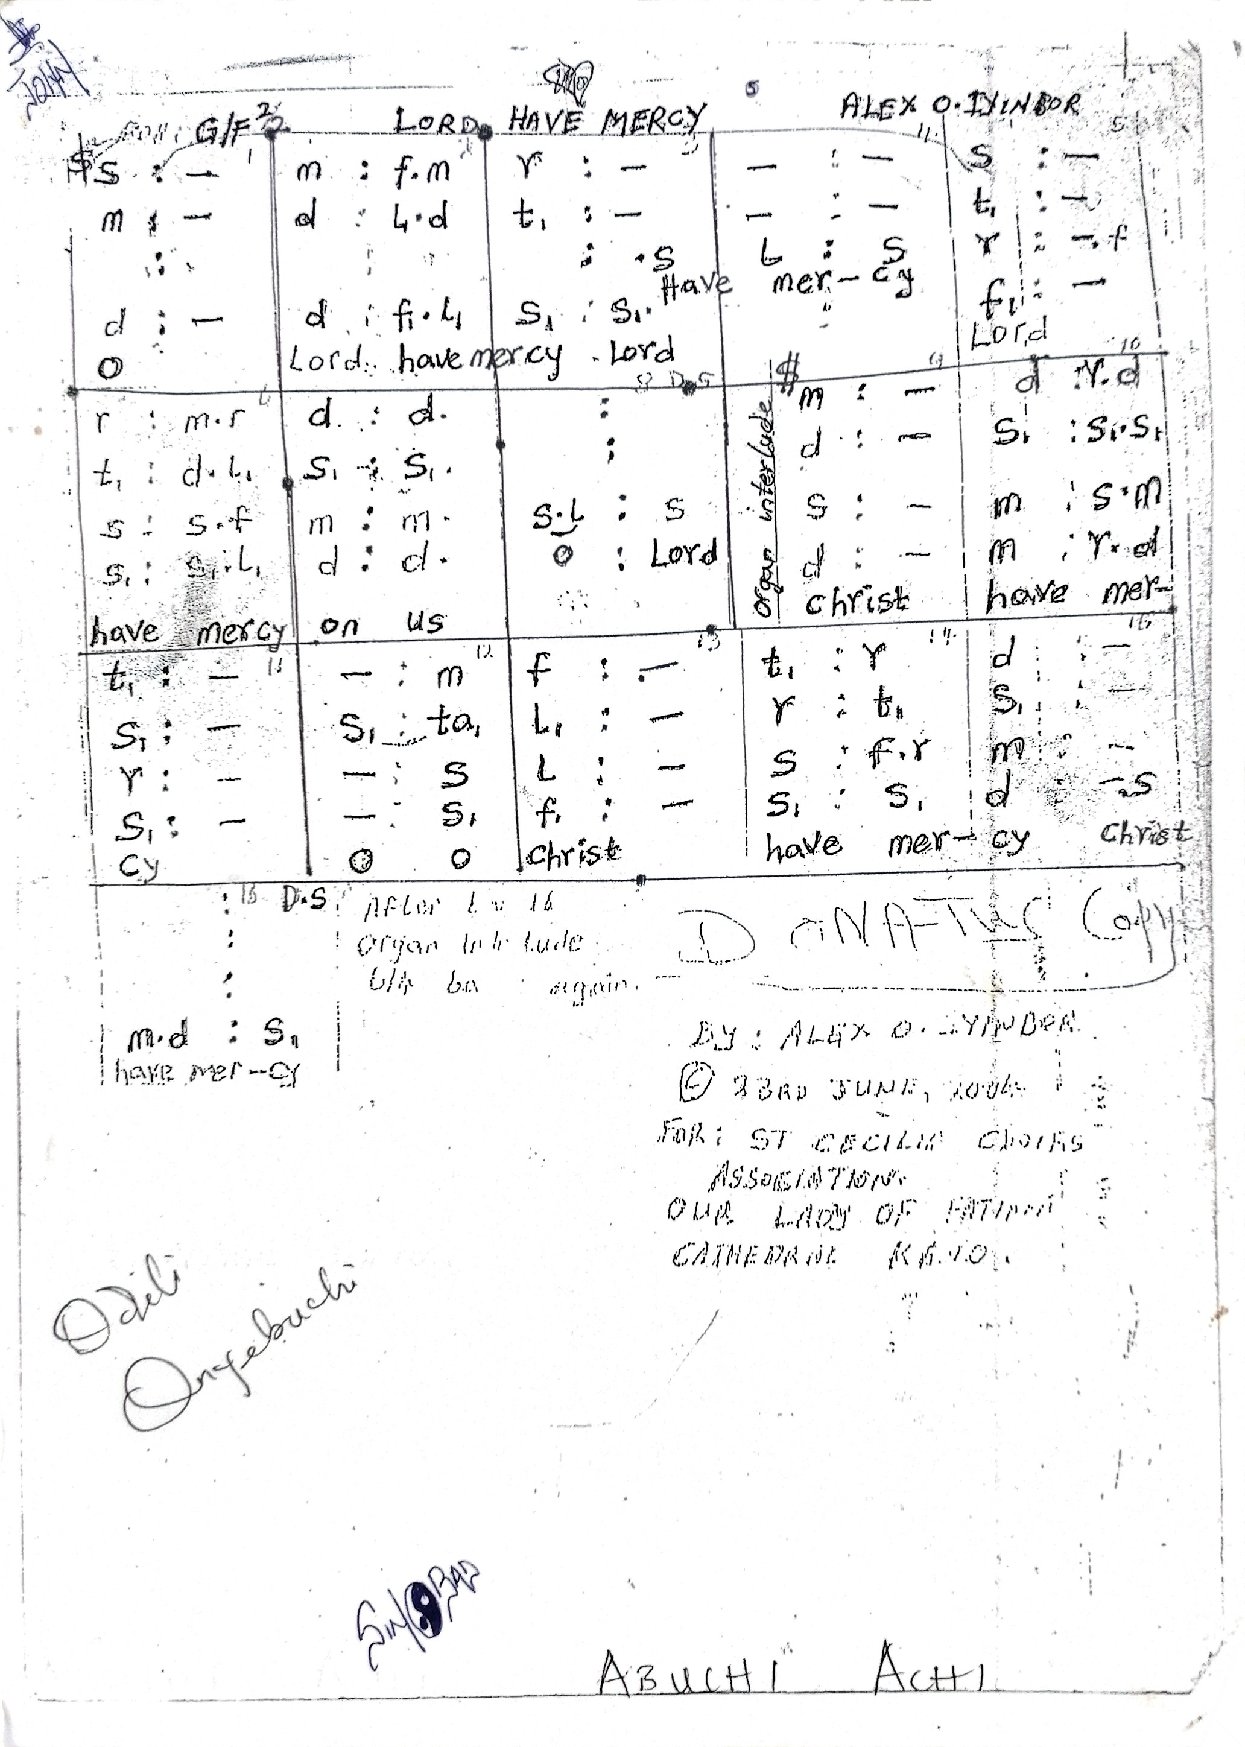 JOHN
FOR: G/F 2/2 LORD HAVE MERCY ALEX O. IYINBOR
1 2 3 4 5
$ s : — | m : f.m | r : — | — : — | s : —
m : — | d : l.d | t₁ : — | — : — | t₁ : —
: | : | : .s | l : s | r : —.f
Have mer — cy
d : — | d : f₁.l₁ | s₁ : s₁. | : | f₁ : —
O Lord have mercy Lord Lord
6 8 D.S $ 9 10
r : m.r | d. : d. | : | m : — | d : r.d
t₁ : d.l₁ | s₁ : s₁. | : | d : — | s₁ : s₁.s₁
s : s.f | m : m. | s.l : s | s : — | m : s.m
s₁ : s₁.l₁ | d : d. | O : Lord | d : — | m : r.d
organ interlude
have mercy on us christ have mer-
11 12 13 14 15
t₁ : — | — : m | f : — | t₁ : r | d : —
s₁ : — | s₁ : ta₁ | l₁ : — | r : t₁ | s₁ : —
r : — | — : s | l : — | s : f.r | m : —
s₁ : — | — : s₁ | f₁ : — | s₁ : s₁ | d : —.s
cy O O christ have mer — cy Christ
: 16 D.S
:
:
m.d : s₁
have mer — cy
After 16
organ
again.
DONATUS Copy
BY: ALEX O. IYINBOR
© 23RD JUNE, 2004
FOR: ST CECILIA CHOIRS
ASSOCIATION.
OUR LADY OF FATIMA
CATHEDRAL KANO.
Odili
Onyebuchi
ABUCHI ACHI